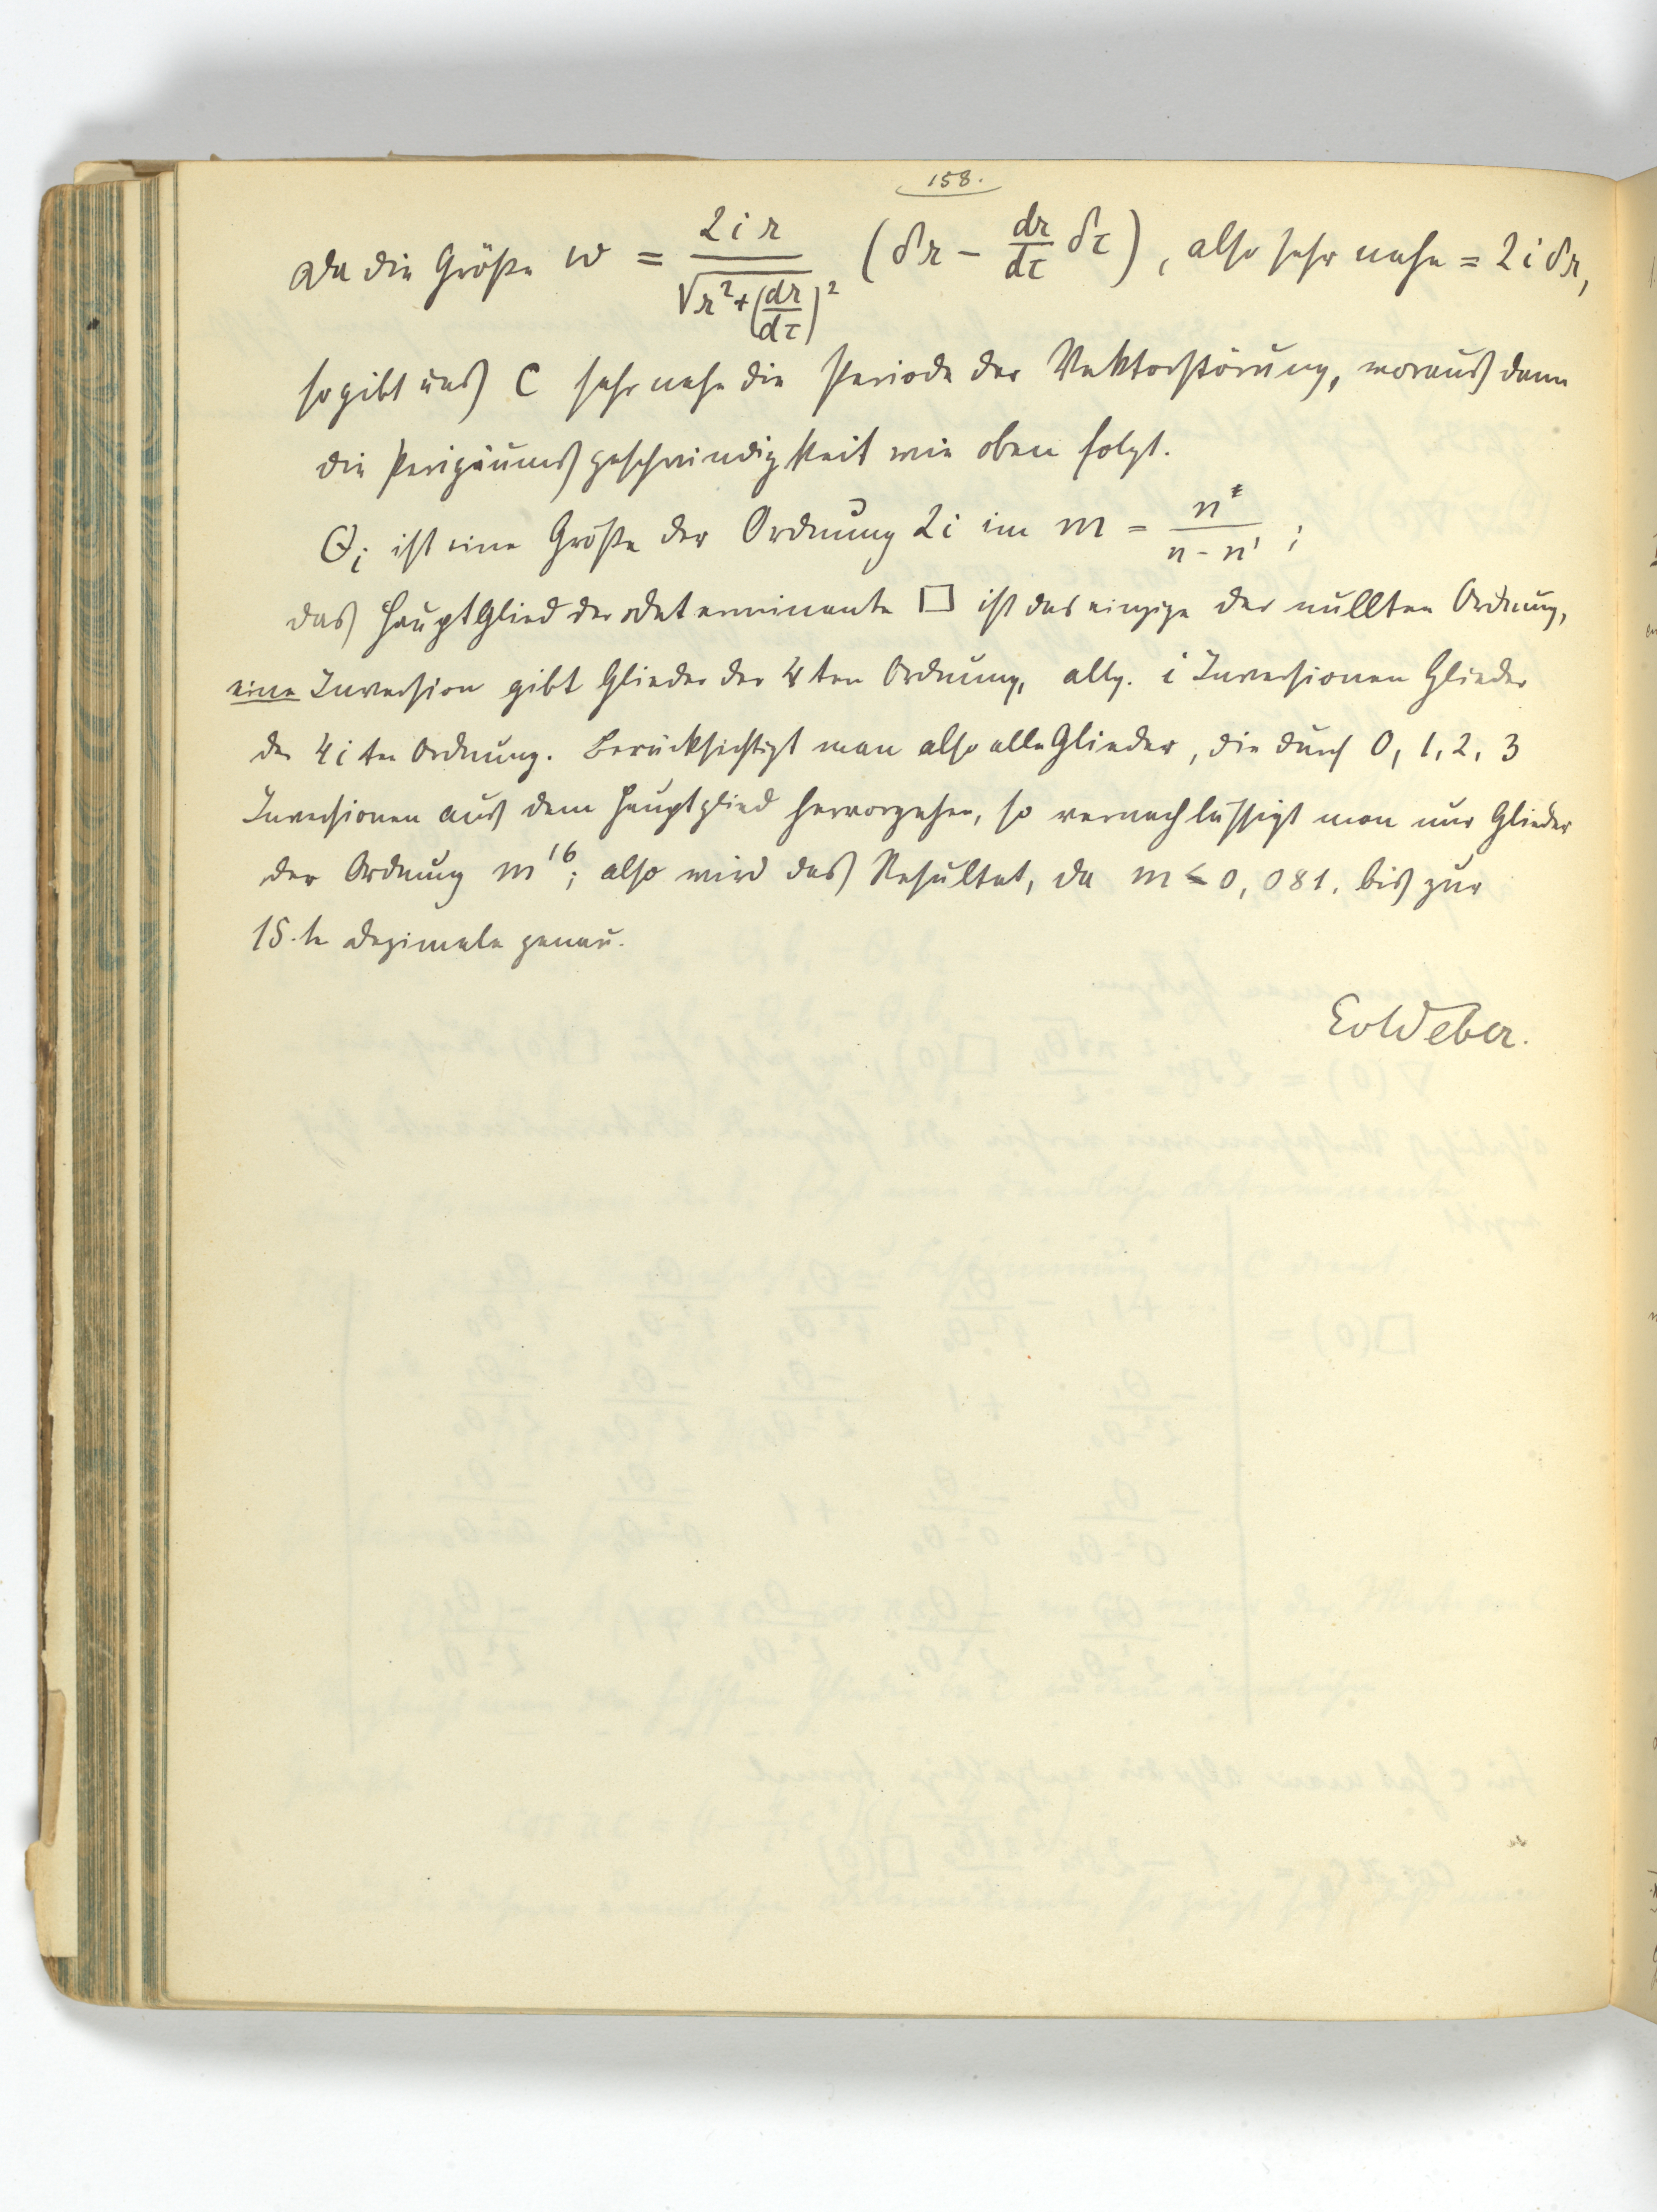 158.
Da die Größe w = 2ir / √(r² + (dr/dτ)²) (δr − dr/dτ δτ), also sehr nahe = 2iδr,
so gibt uns c sehr nahe die Periode der Vektorstörung, woraus dann
die Perigäumsgeschwindigkeit wie oben folgt.
Θi ist eine Größe der Ordnung 2i in m = n' / (n − n') ;
das Hauptglied der Determinante □ ist das einzige der nullten Ordnung,
eine Inversion gibt Glieder der 4ten Ordnung, allg. i Inversionen Glieder
der 4i ten Ordnung. Berücksichtigt man also alle Glieder, die durch 0, 1, 2, 3
Inversionen aus dem Hauptglied hervorgehen, so vernachlässigt man nur Glieder
der Ordnung m¹⁶; also wird das Resultat, da m ≤ 0,081. bis zur
15.te Dezimale genau.
EvWeber.